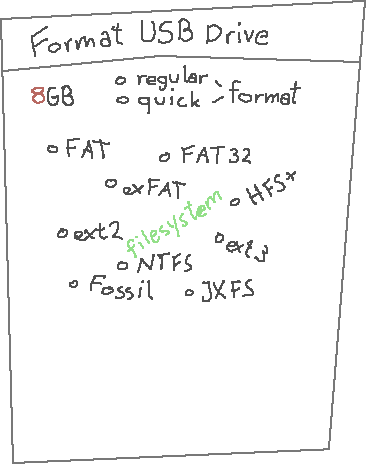 Format USB Drive
8GB
regular
quick
format
FAT
FAT32
exFAT
HFS*
filesystem
ext2
ext3
NTFS
Fossil
JXFS